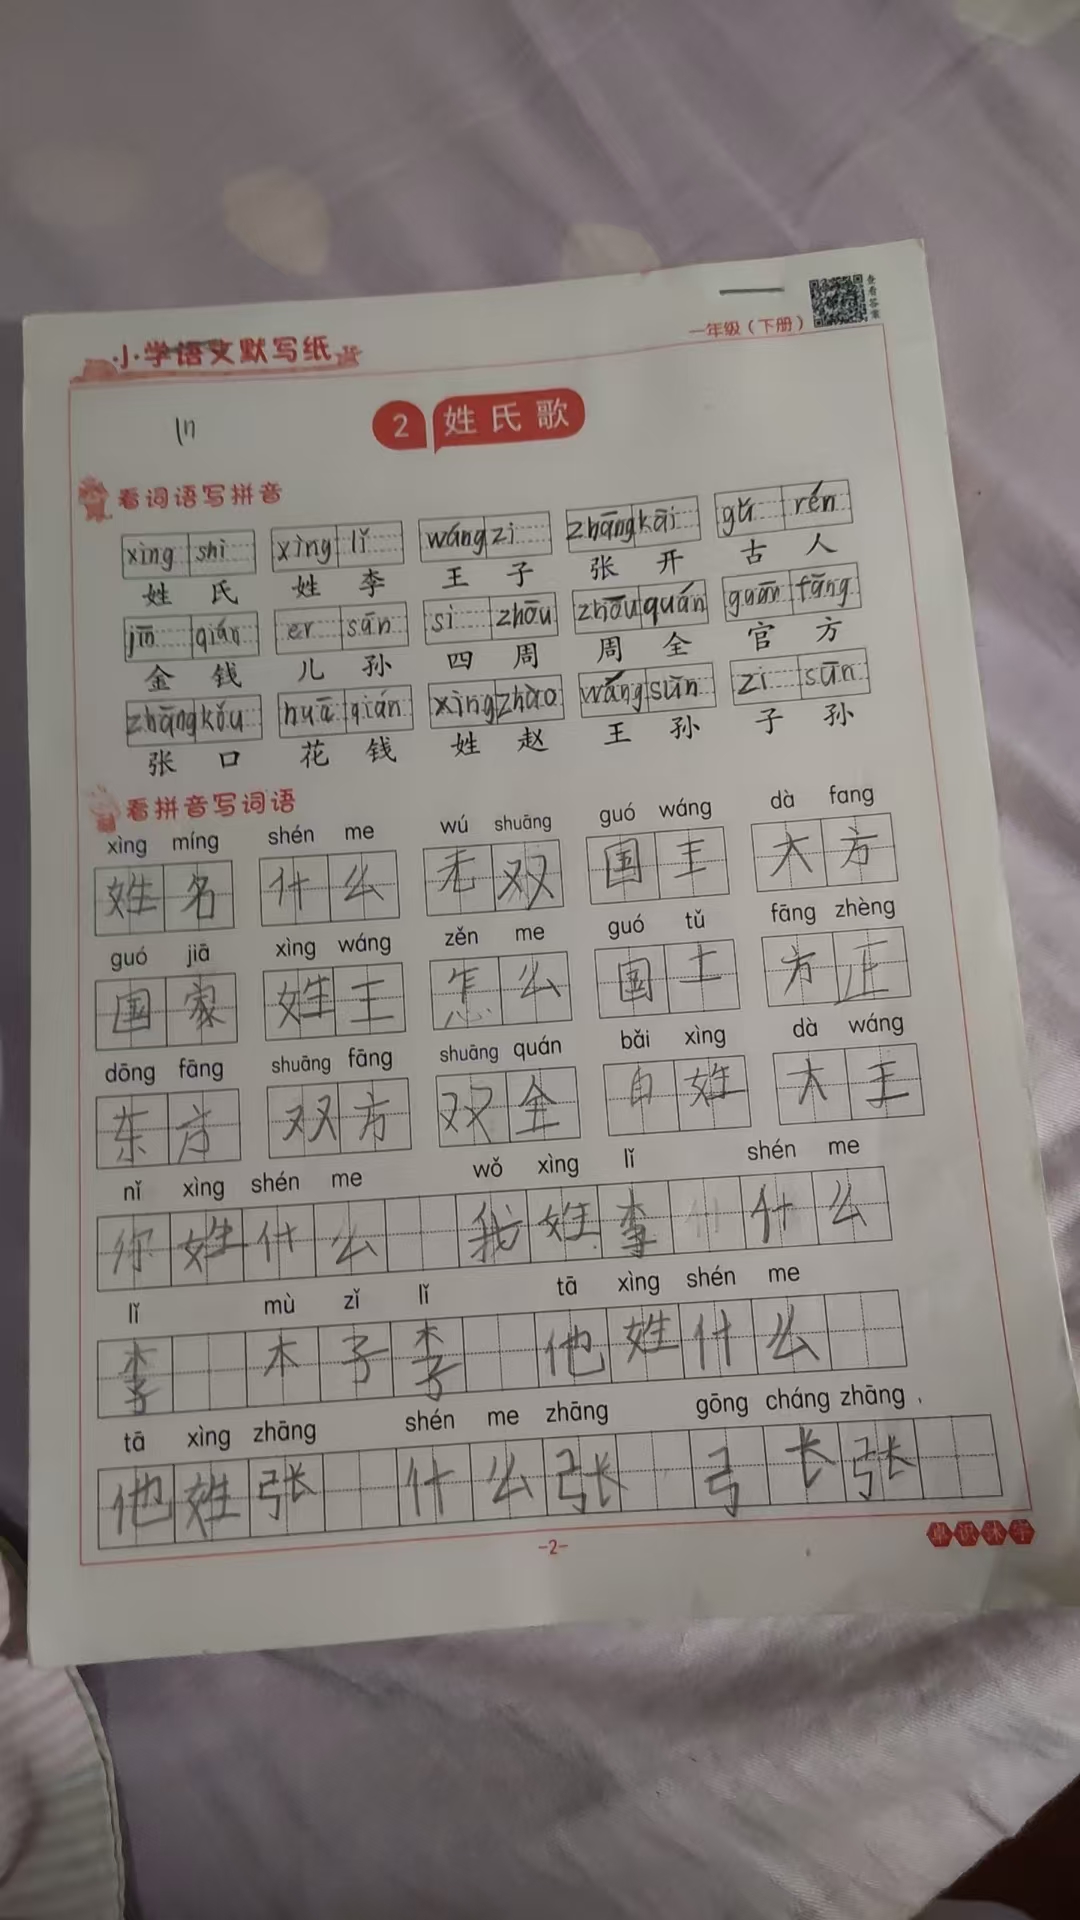 查看答案
小学语文默写纸
一年级（下册）
2 姓氏歌
看词语写拼音
xìng shì xìng lǐ wáng zi zhāng kāi gǔ rén
姓 氏 姓 李 王 子 张 开 古 人
jīn qián er sūn sì zhōu zhōu quán guān fāng
金 钱 儿 孙 四 周 周 全 官 方
zhāng kǒu huā qián xìng zhào wáng sūn zi sūn
张 口 花 钱 姓 赵 王 孙 子 孙
看拼音写词语
xìng míng shén me wú shuāng guó wáng dà fang
姓 名 什 么 无 双 国 王 大 方
guó jiā xìng wáng zěn me guó tǔ fāng zhèng
国 家 姓 王 怎 么 国 土 方 正
dōng fāng shuāng fāng shuāng quán bǎi xìng dà wáng
东 方 双 方 双 全 白 姓 大 王
nǐ xìng shén me wǒ xìng lǐ shén me
你 姓 什 么 我 姓 李 什 么
lǐ mù zǐ lǐ tā xìng shén me
李 木 子 李 他 姓 什 么
tā xìng zhāng shén me zhāng gōng cháng zhāng
他 姓 张 什 么 张 弓 长 张
-2-